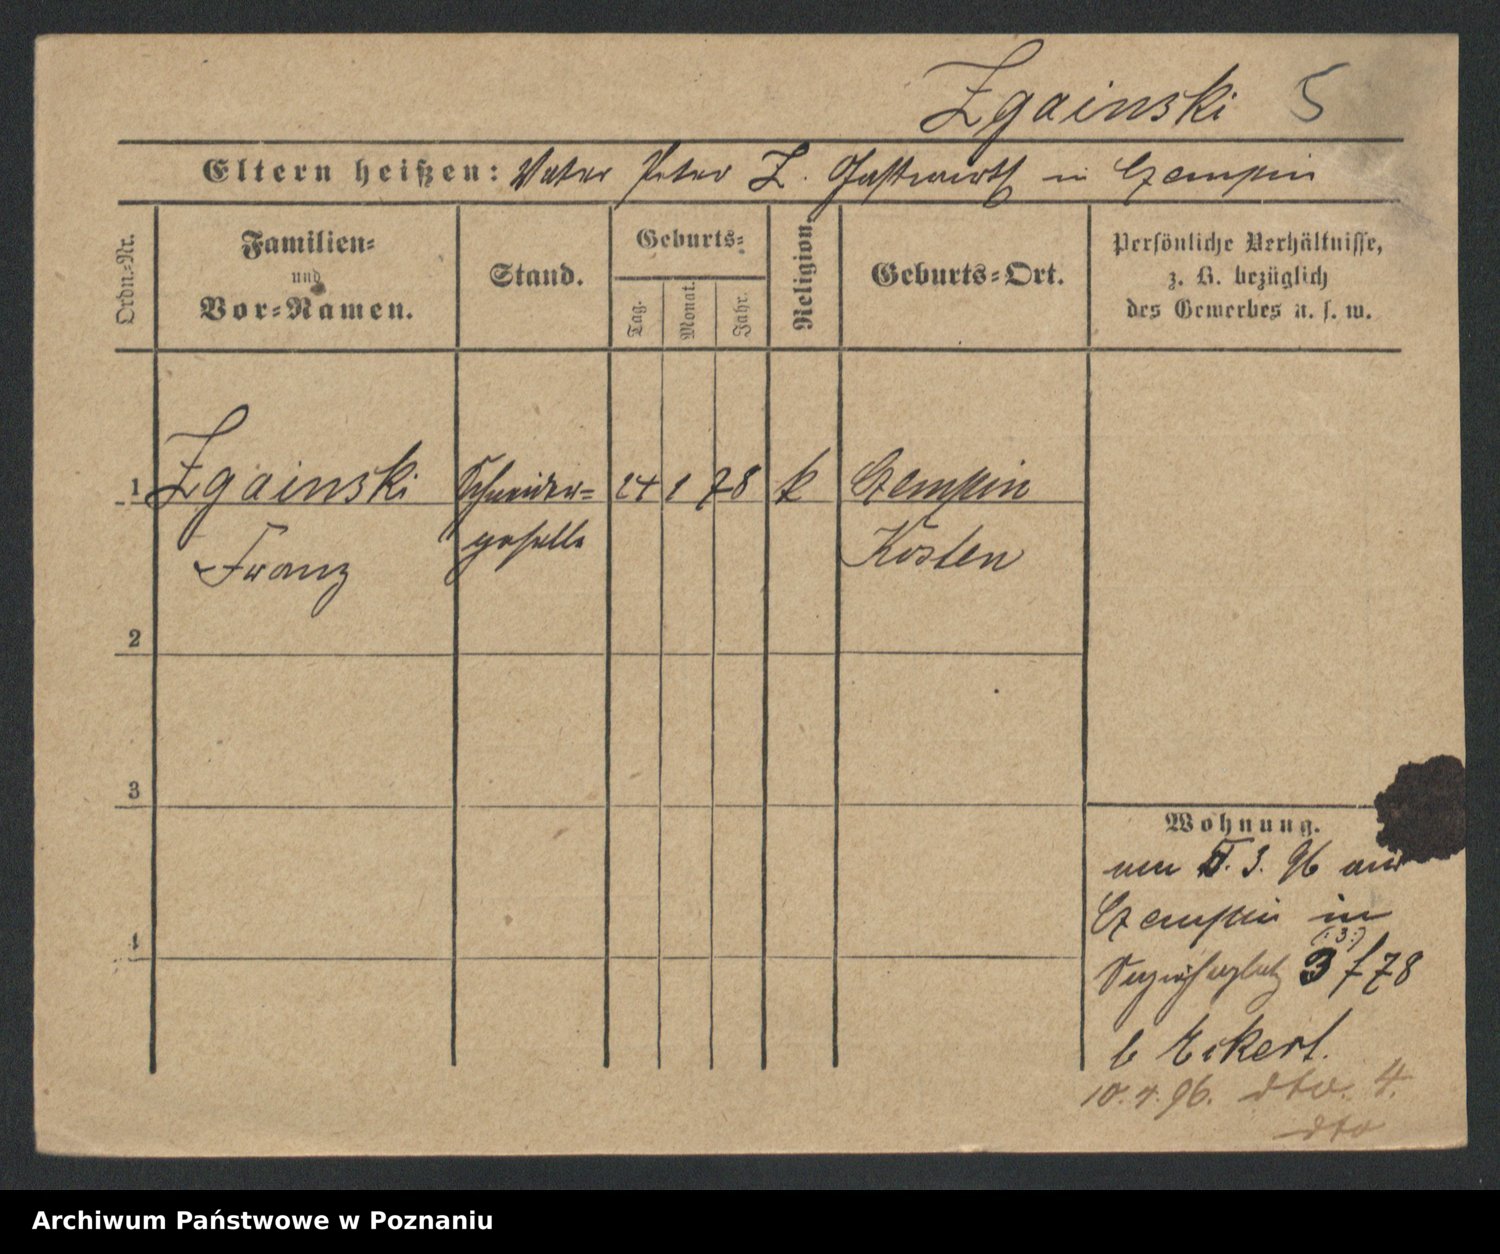 Zgainski 5
Eltern heißen: Vater Peter Z. Gastwirth in Czempin
Ordn.-Nr.
Familien-
und
Vor-Namen.
Stand.
Geburts-
Tag.
Monat.
Jahr.
Religion.
Geburts-Ort.
Persönliche Verhältnisse,
z. B. bezüglich
des Gewerbes u. s. w.
1 Zgainski Schneider- 24 1 78 k Czempin
Franz geselle Kosten
2
3
4
Wohnung.
3. 96 aus
Czempin in
(:3:)
3/78
b Eckert.
10.4.96. dto. 4.
dto
Archiwum Państwowe w Poznaniu